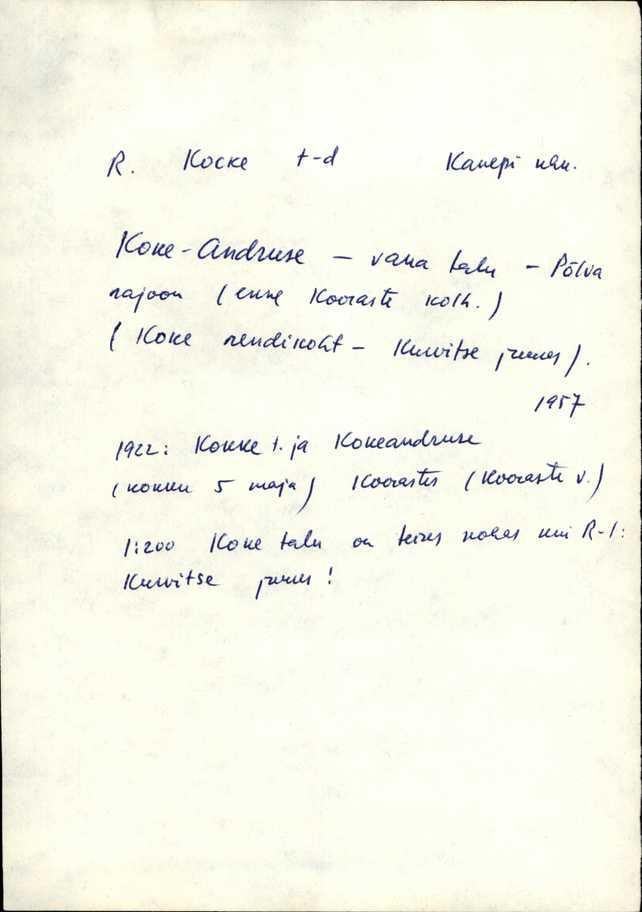 R. Kocke t-d Kanepi khn.
Koke-Andruse – vana talu – Põlva
rajoon (enne Kooraste kolh.)
(Koke rendikoht – Kurvitse juures).
1957
1922: Kokke t. ja Kokeandruse
(kokku 5 maja) Koorastes (Kooraste v.)
1:200 Koke talu on teises kohas kui R-l:
Kurvitse juures!